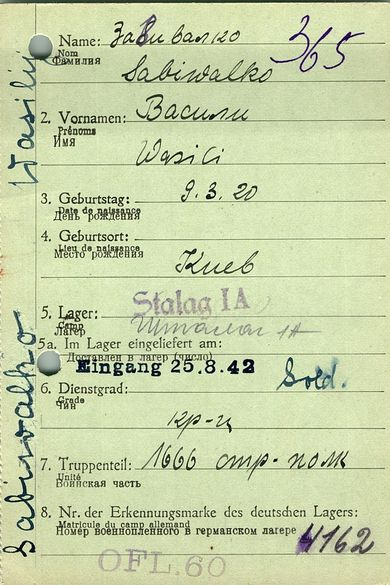 365
Name: Забивалко
Nom
Фамилия
Sabiwalko
2. Vornamen: Васили
Prénoms
Имя
Wasili
3. Geburtstag: 9.3.20
Date de naissance
День рождения
4. Geburtsort:
Lieu de naissance
Место рождения
Киев
5. Lager: Stalag IA
Camp
Лагер Шталаг 1А
5a. Im Lager eingeliefert am:
Доставлен в лагер (число)
Eingang 25.8.42
Sold.
6. Dienstgrad:
Grade
Чин
кр-ц
7. Truppenteil: 1666 стр-полк
Unité
Воинская часть
8. Nr. der Erkennungsmarke des deutschen Lagers:
Matricule du camp allemand
Номер военнопленного в германском лагере 4162
OFL.60
Sabiwalko Wasilij